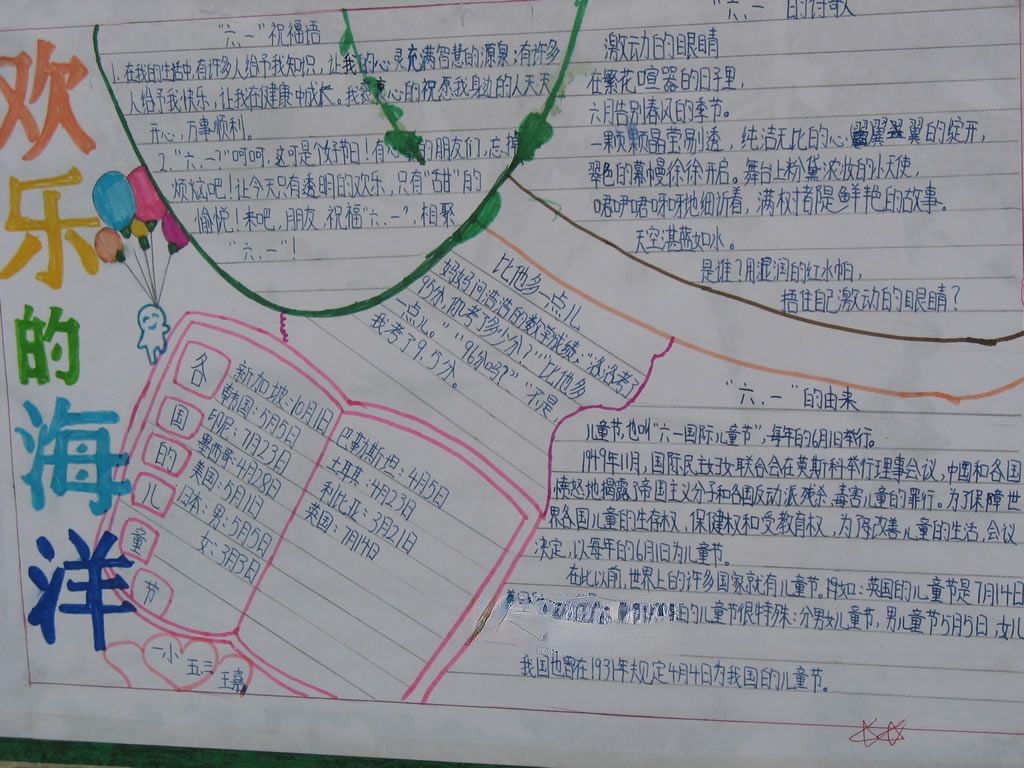 欢乐的海洋
“六.一”祝福语
1.在我的生活中,有许多人给予我知识,让我的心灵充满智慧的源泉;有许多
人给予我快乐,让我在健康中成长。我衷心的祝愿我身边的人天天
开心,万事顺利。
2.“六.一”?呵呵,这可是个好节日!有心事的朋友们,忘掉
烦恼吧!让今天只有透明的欢乐,只有“甜甘”的
愉悦!来吧,朋友,祝福“六.一”,相聚
“六.一”!
“六.一”的诗歌
激动的眼睛
在繁花喧嚣的日子里,
六月告别春风的季节。
一颗颗晶莹剔透,纯洁无比的心翼翼的绽开,
翠色的幕幔徐徐开启。舞台上粉黛浓妆的小天使,
咿咿呀呀地细诉着,满载着鲜艳的故事。
天空湛蓝如水。
是谁?用湿润的红水帕,
捂住自己激动的眼睛?
比他多一点儿
妈妈问浩浩的数学成绩:“洛洛考了
95分,你考了多少分?”“比他多
一点儿。”“96分吗?”“不是,
我考了9.5分。
各国的儿童节
新加坡:10月1日
韩国:5月5日
印尼:7月23日
墨西哥:4月28日
美国:5月1日
日本:男:5月5日
女:3月3日
巴勒斯坦:4月5日
土耳其:4月23日
利比亚:3月21日
英国:7月14日
“六.一”的由来
儿童节,也叫“六一国际儿童节”,每年的6月1日举行。
1949年11月,国际民主妇女联合会在莫斯科举行理事会议,中国和各国
愤怒地揭露了帝国主义分子和各国反动派残杀、毒害儿童的罪行。为了保障世
界各国儿童的生存权、保健权和受教育权,为了改善儿童的生活,会议
决定,以每年的6月1日为儿童节。
在此以前,世界上的许多国家就有儿童节。例如:英国的儿童节是7月14日
的儿童节很特殊:分男女儿童节,男儿童节5月5日,女儿
我国也曾在1931年规定4月4日为我国的儿童节。
一小
五三
王嘉